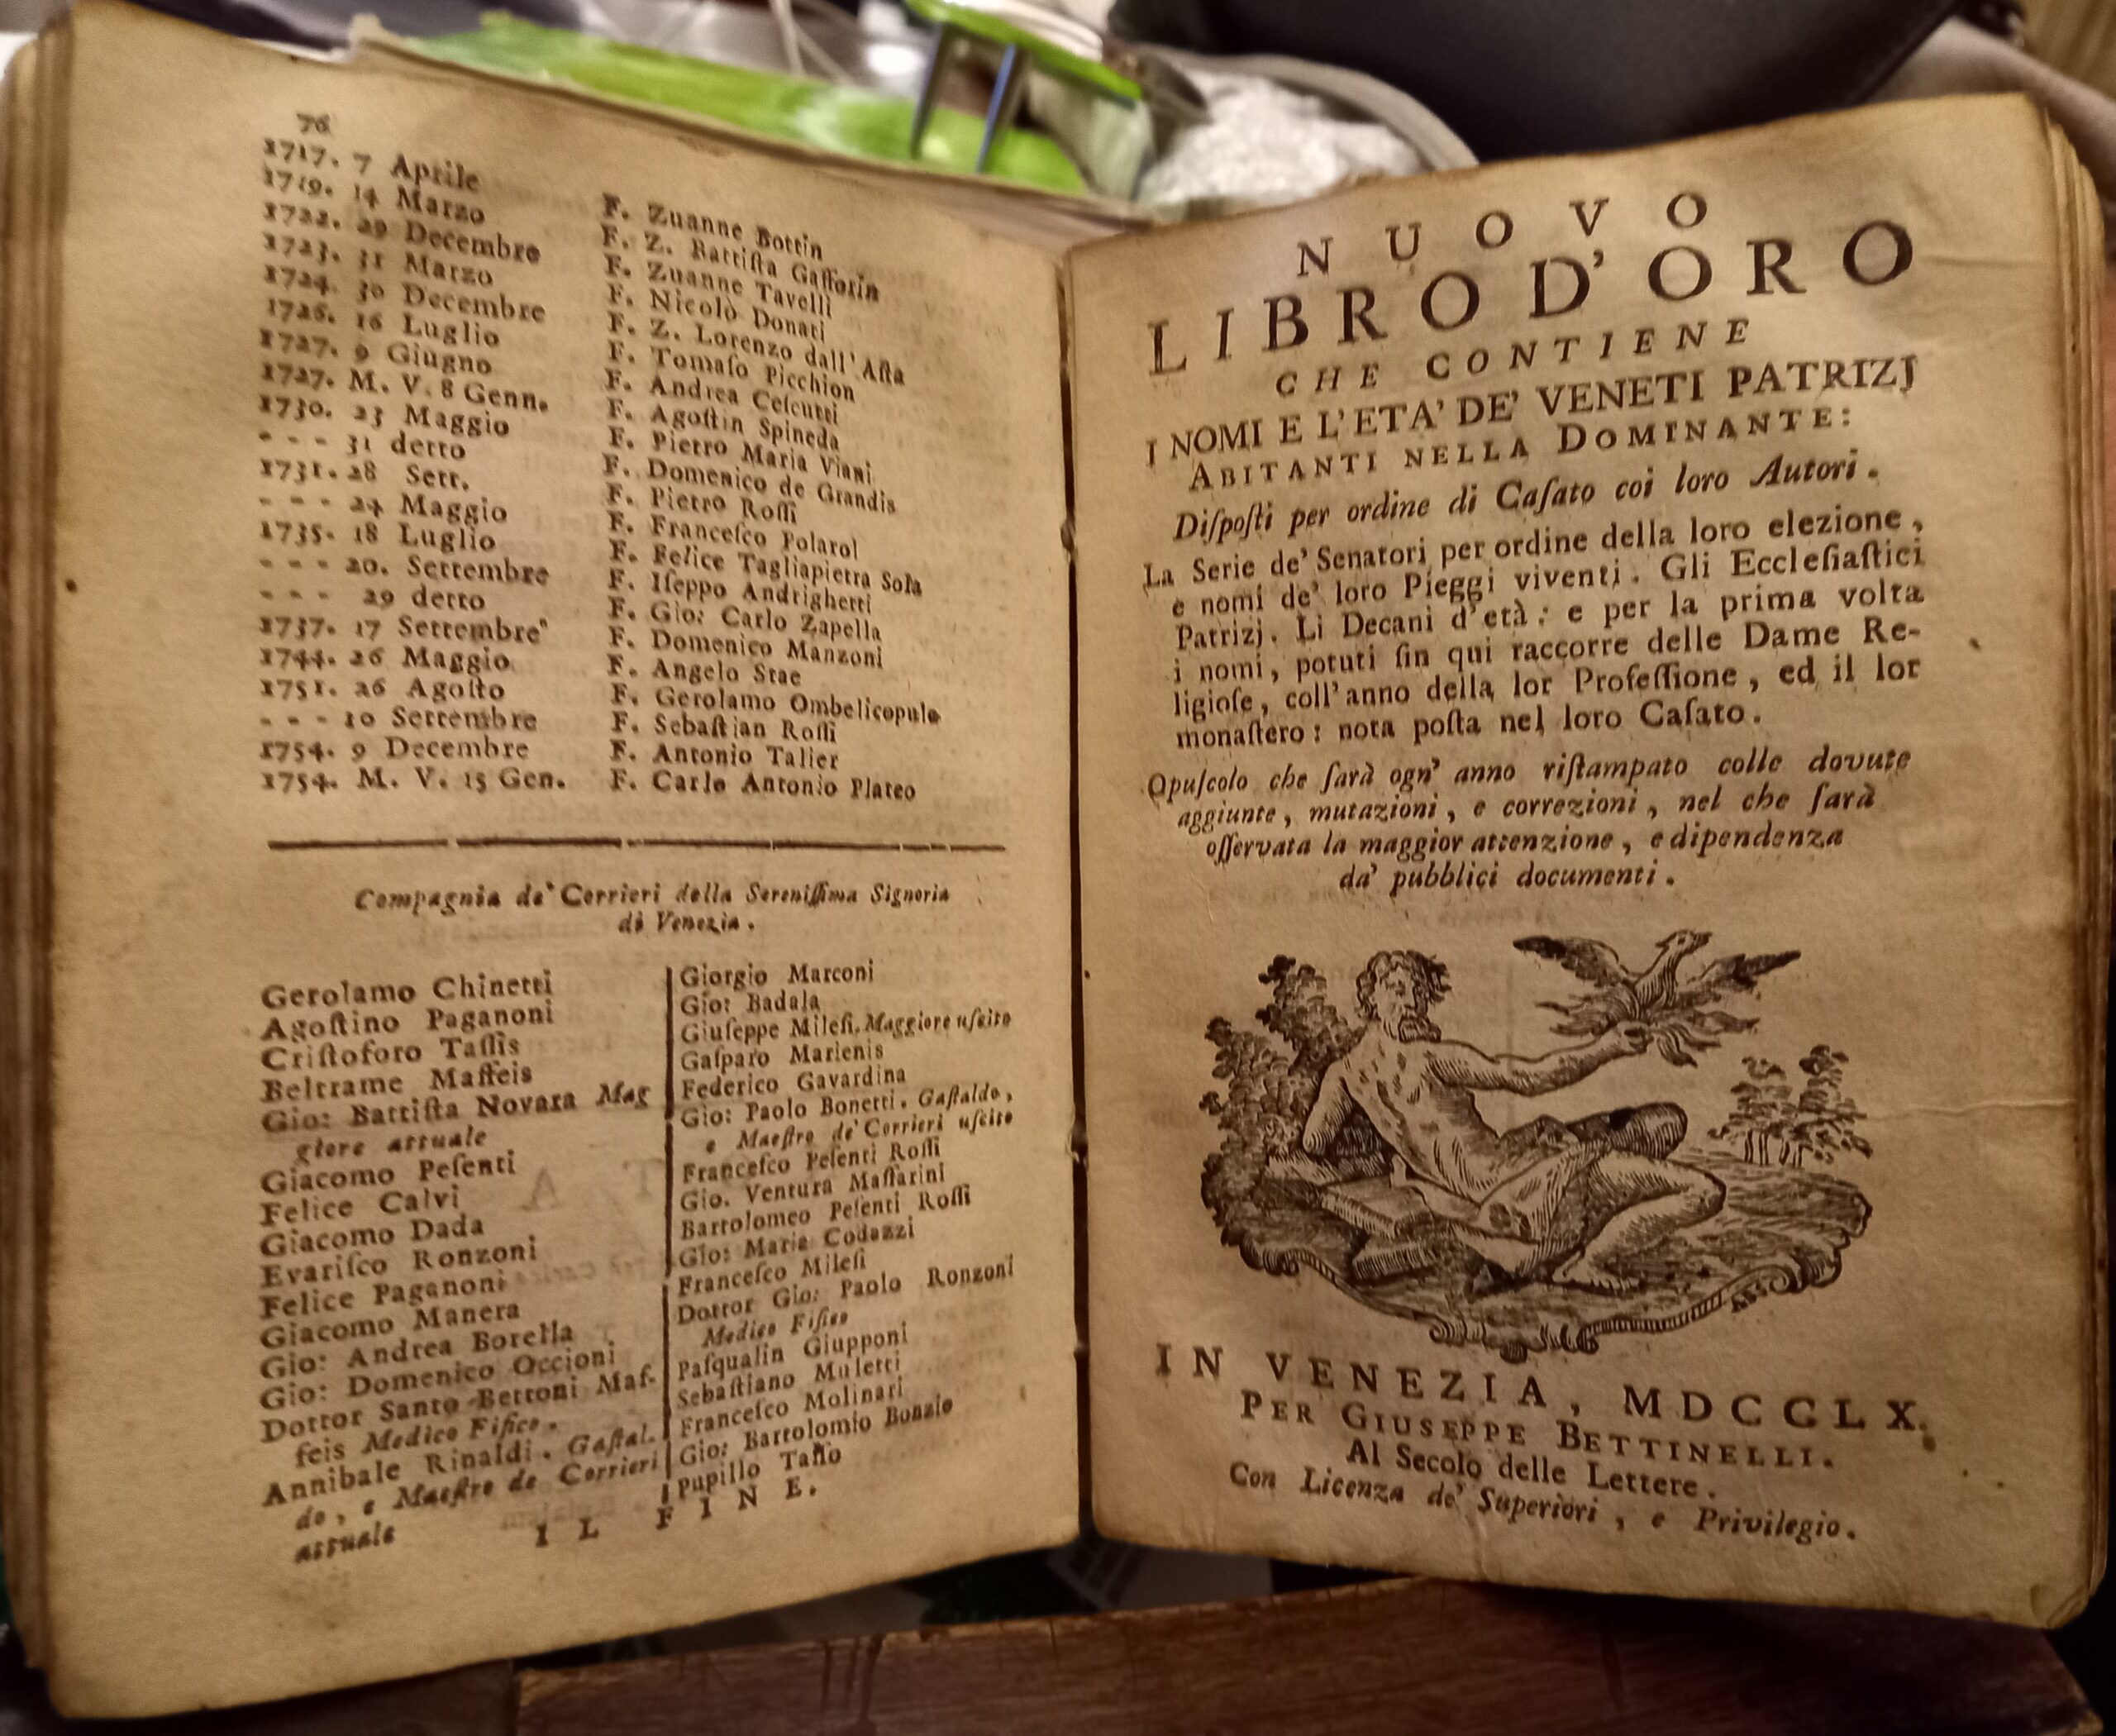 76
1717. 7 Aprile F. Zuanne Bottin
1719. 14 Marzo F. Z. Battiſta Gafforin
1722. 29 Decembre F. Zuanne Tavelli
1723. 31 Marzo F. Nicolò Donati
1724. 30 Decembre F. Z. Lorenzo dall' Aſta
1726. 16 Luglio F. Tomaſo Picchion
1727. 9 Giugno F. Andrea Ceſcutti
1727. M. V. 8 Genn. F. Agoſtin Spineda
1730. 23 Maggio F. Pietro Maria Viani
- - - 31 detto F. Domenico de Grandis
1731. 28 Sett. F. Pietro Roſſi
- - - 24 Maggio F. Franceſco Polarol
1735. 18 Luglio F. Felice Tagliapietra Sola
- - - 20. Settembre F. Iſeppo Andrighetti
- - - 29 detto F. Gio: Carlo Zapella
1737. 17 Settembre F. Domenico Manzoni
1744. 26 Maggio F. Angelo Stae
1751. 26 Agoſto F. Gerolamo Ombelicopulo
- - - 10 Settembre F. Sebaſtian Roſſi
1754. 9 Decembre F. Antonio Talier
1754. M. V. 15 Gen. F. Carlo Antonio Plateo
Compagnia de' Corrieri della Sereniſſima Signoria
di Venezia.
Gerolamo Chinetti
Agoſtino Paganoni
Criſtoforo Taſſis
Beltrame Maffeis
Gio: Battiſta Novara Mag
giore attuale
Giacomo Peſenti
Felice Calvi
Giacomo Dada
Evariſco Ronzoni
Felice Paganoni
Giacomo Manera
Gio: Andrea Borella
Gio: Domenico Occioni
Dottor Santo Bettoni Maf-
feis Medico Fiſico.
Annibale Rinaldi. Gaſtal.
do, e Maeſtro de Corrieri
attuale
Giorgio Marconi
Gio: Badala
Giuſeppe Mileſi. Maggiore uſcito
Gaſparo Marienis
Federico Gavardina
Gio: Paolo Bonetti. Gaſtaldo,
e Maeſtro de' Corrieri uſcito
Franceſco Peſenti Roſſi
Gio. Ventura Maſſarini
Bartolomeo Peſenti Roſſi
Gio: Maria Codazzi
Franceſco Mileſi
Dottor Gio: Paolo Ronzoni
Medico Fiſico
Paſqualin Giupponi
Sebaſtiano Muletti
Franceſco Molinari
Gio: Bartolomio Bonzio
Pupillo Taſſo
IL FINE.
NUOVO
LIBRO D'ORO
CHE CONTIENE
I NOMI E L'ETA' DE' VENETI PATRIZJ
ABITANTI NELLA DOMINANTE:
Diſpoſti per ordine di Caſato coi loro Autori.
La Serie de' Senatori per ordine della loro elezione,
e nomi de' loro Pieggi viventi. Gli Eccleſiaſtici
Patrizj. Li Decani d'età: e per la prima volta
i nomi, potuti ſin qui raccorre delle Dame Re-
ligioſe, coll'anno della lor Profeſſione, ed il lor
monaſtero: nota poſta nel loro Caſato.
Opuſcolo che ſarà ogn' anno riſtampato colle dovute
aggiunte, mutazioni, e correzioni, nel che ſarà
oſſervata la maggior attenzione, e dipendenza
da' pubblici documenti.
IN VENEZIA, MDCCLX.
PER GIUSEPPE BETTINELLI.
Al Secolo delle Lettere.
Con Licenza de' Superiori, e Privilegio.